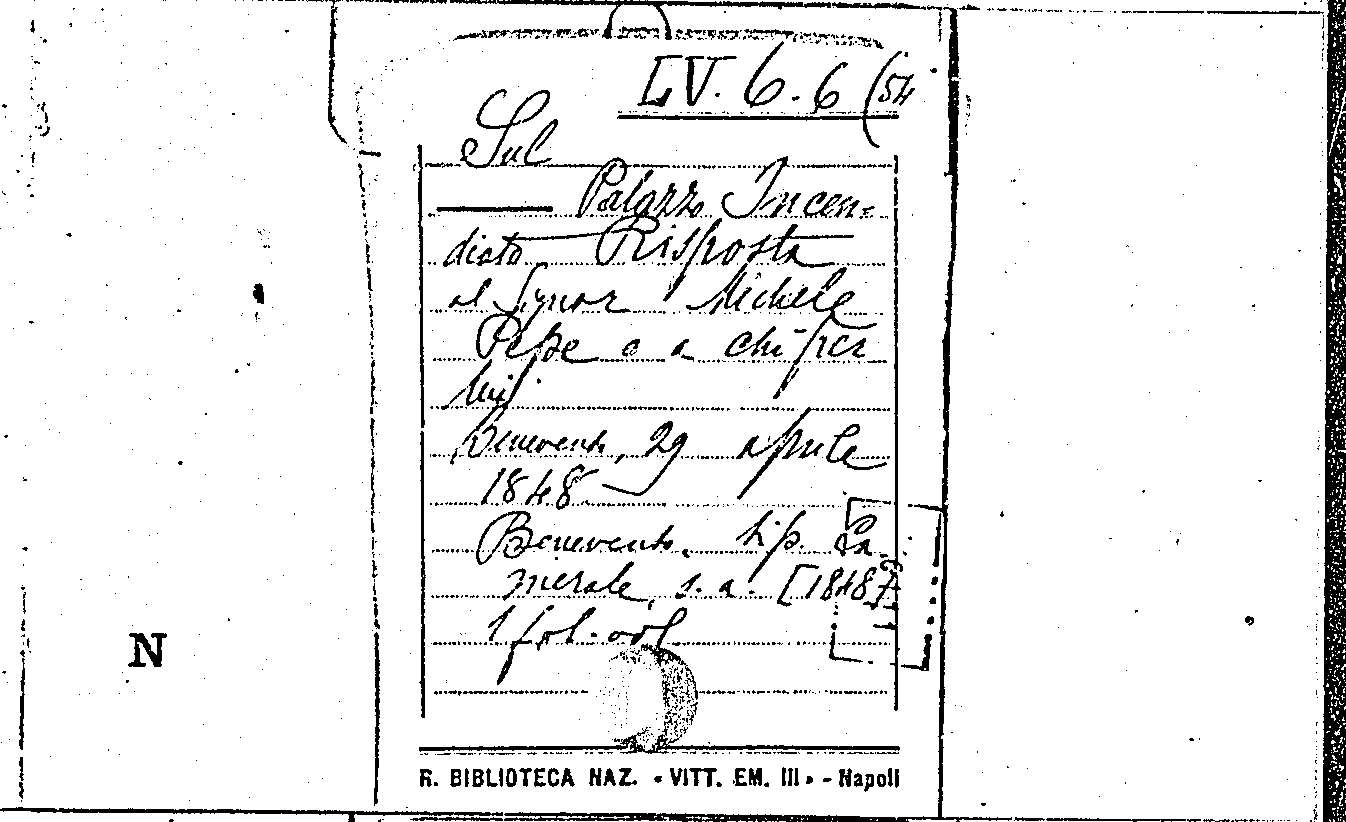 LV. 6. 6 (54
Sul
Palazzo Incen-
diato Risposta
al Signor Michele
Pepe e a chi per
lui.
Benevento, 29 aprile
1848
Benevento, tip. Ca-
merale, s. a. [1848]
1 fol. vol
N
R. BIBLIOTECA NAZ. « VITT. EM. III » - Napoli